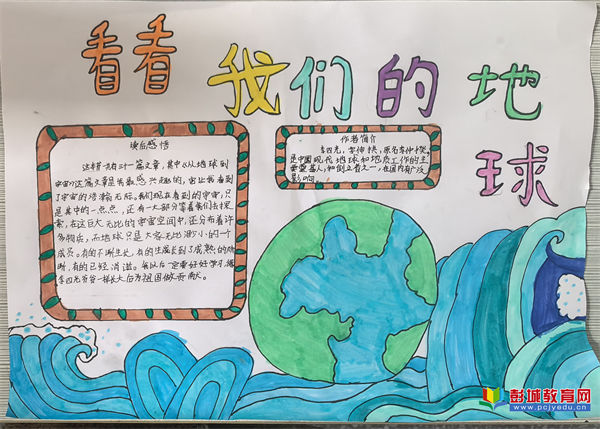 看看我们的地球
读后感悟
这本书一共有二十一篇文章，其中《从地球到
宇宙》这篇文章是我最感兴趣的，它让我看到
了宇宙的浩瀚无际。我们现在看到的宇宙，只
是其中的一点点，还有一大部分等着我们去探
索，在这巨大无比的宇宙空间中，还分布着许
多物质，而地球只是大家无比渺小的一个
成员。有的不断生长，有的生成长到了成熟的时
期，有的已经消逝。我以后一定要好好学习，像
李四光爷爷一样长大后为祖国做贡献。
作者简介
李四光，李仲揆，原名李仲揆，
是中国现代地球和地质工作的主
要奠基人，和创立者之一，在国内有广泛
影响。
彭城教育网
www.pcjyedu.cn